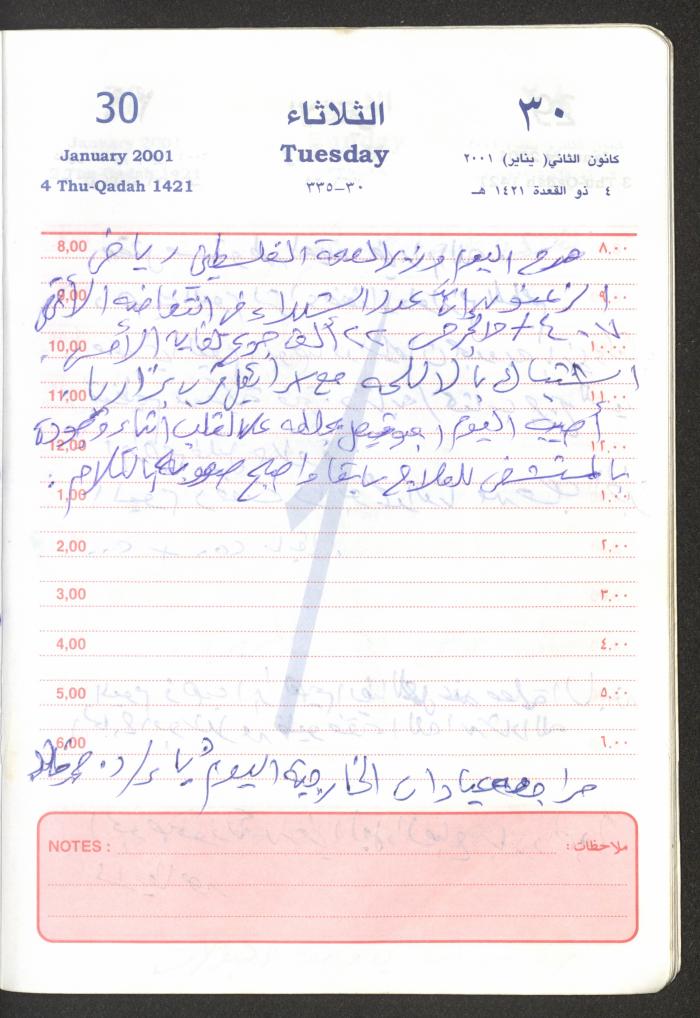 30 الثلاثاء ٣٠
January 2001 Tuesday كانون الثاني( يناير) ٢٠٠١
4 Thu-Qadah 1421 ٣٣٥-٣٠ ٤ ذو القعدة ١٤٢١ هـ
8,00 صرح اليوم وزير الصحة الفلسطيني رياض ٨.٠٠
9,00 الزعنون إن عدد الشهداء في انتفاضة الأقصى ٩.٠٠
٤٠٧ + والجرحى ٢٢ ألف جريح لغاية الأمس.
10,00 ١٠.٠٠
اشتباك بالأسلحة مع
11,00 ١١.٠٠
أصيب اليوم بجلطه القلب أثناء وجوده
12,00 ١٢.٠٠
بالمستشفى للعلاج سابقا وأصبح صعوبة بالكلام.
1,00 ١.٠٠
2,00 ٢.٠٠
3,00 ٣.٠٠
4,00 ٤.٠٠
5,00 ٥.٠٠
6,00 ٦.٠٠
مراجعه عيادات الخارجية اليوم / د.
NOTES : ملاحظات :